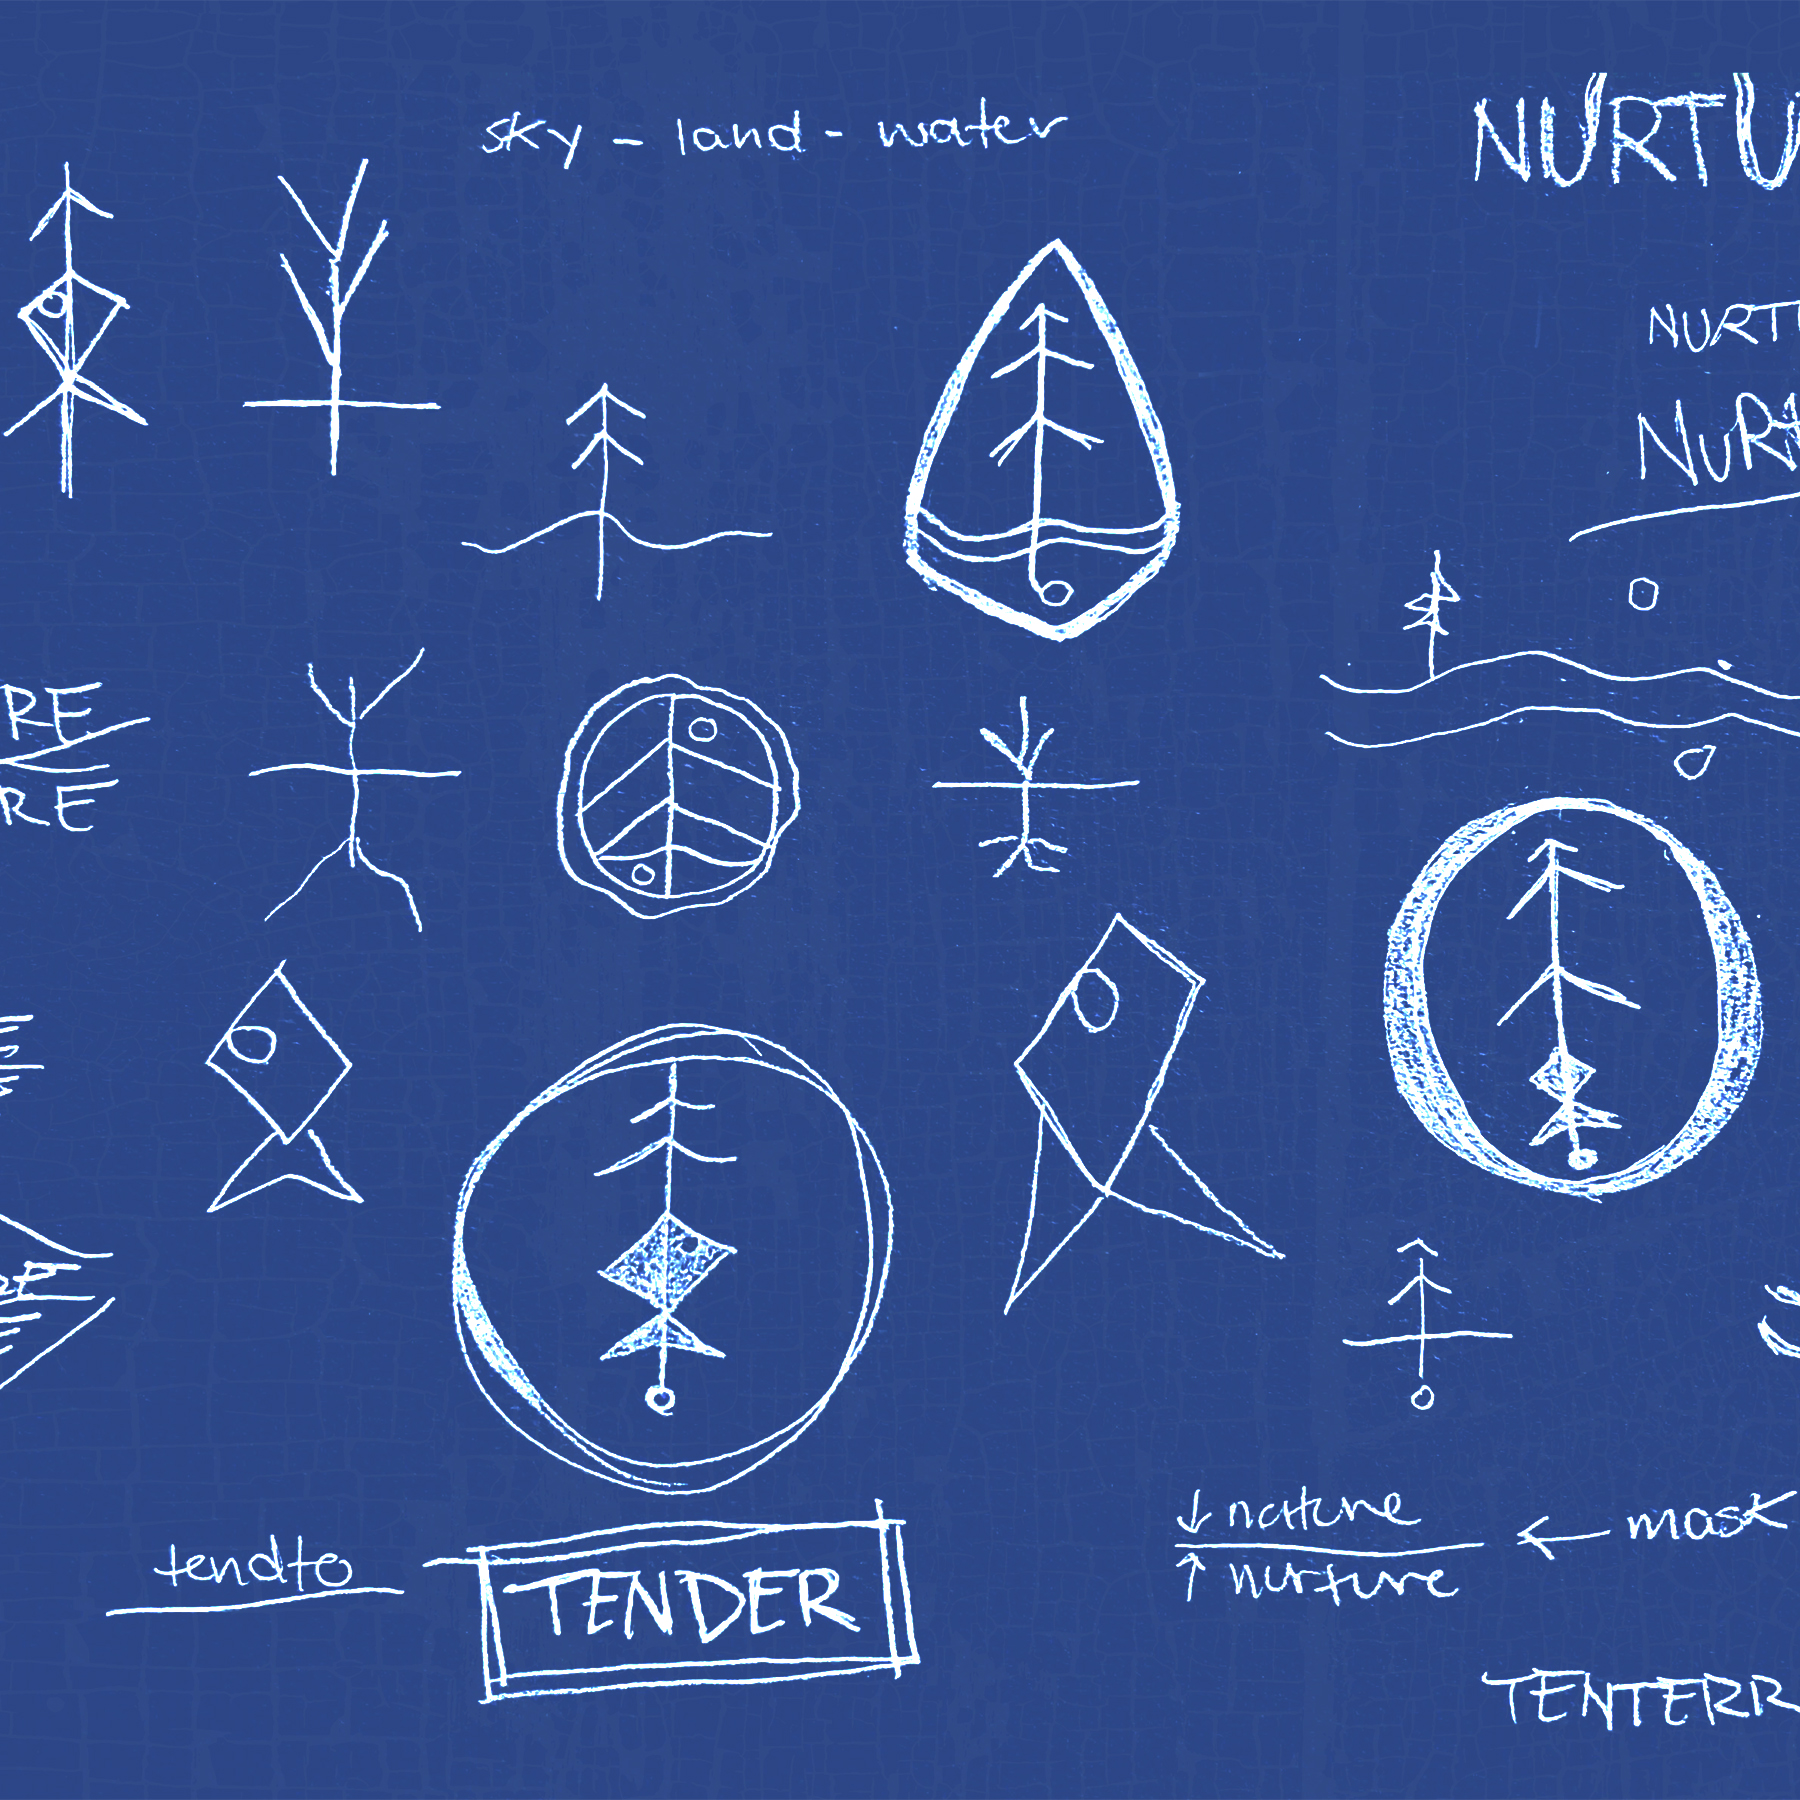 sky - land - water
NURTU
NURT
NUR
RE
RE
E
RE
↓ nature
↑ nurture
← mask
tendto
TENDER
TENTERR